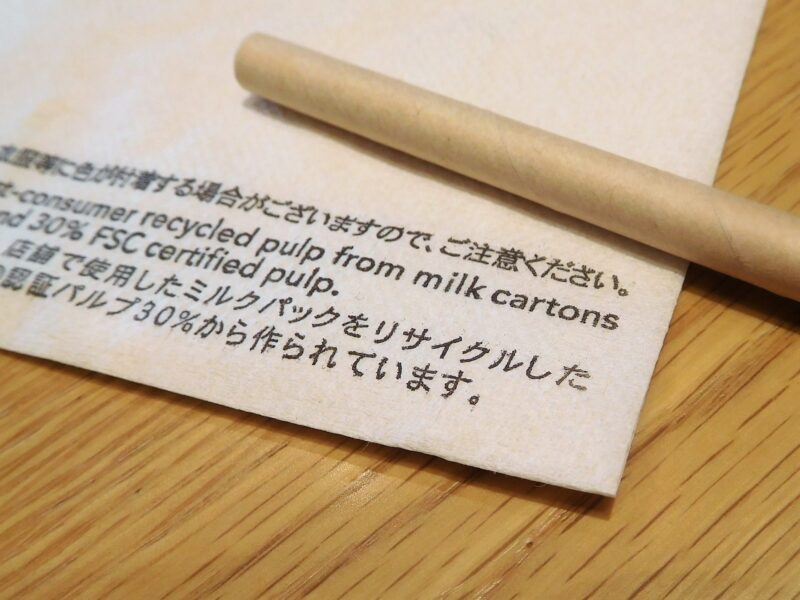 色が付着する場合がございますので、ご注意ください。
consumer recycled pulp from milk cartons
30% FSC certified pulp.
店舗で使用したミルクパックをリサイクルした
認証パルプ30%から作られています。